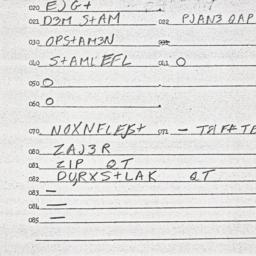 020 EJG+
021 D3M S+AM 022 PJAN3 QAP
030 OPS+AM3N
040 S+AMLEFL 041 O
050 O
060 O
070 NOXNFLEJS+ 071 -
080 ZAJ3R
081 ZIP QT
082 DURXS+LAK QT
083 -
084 -
085 -